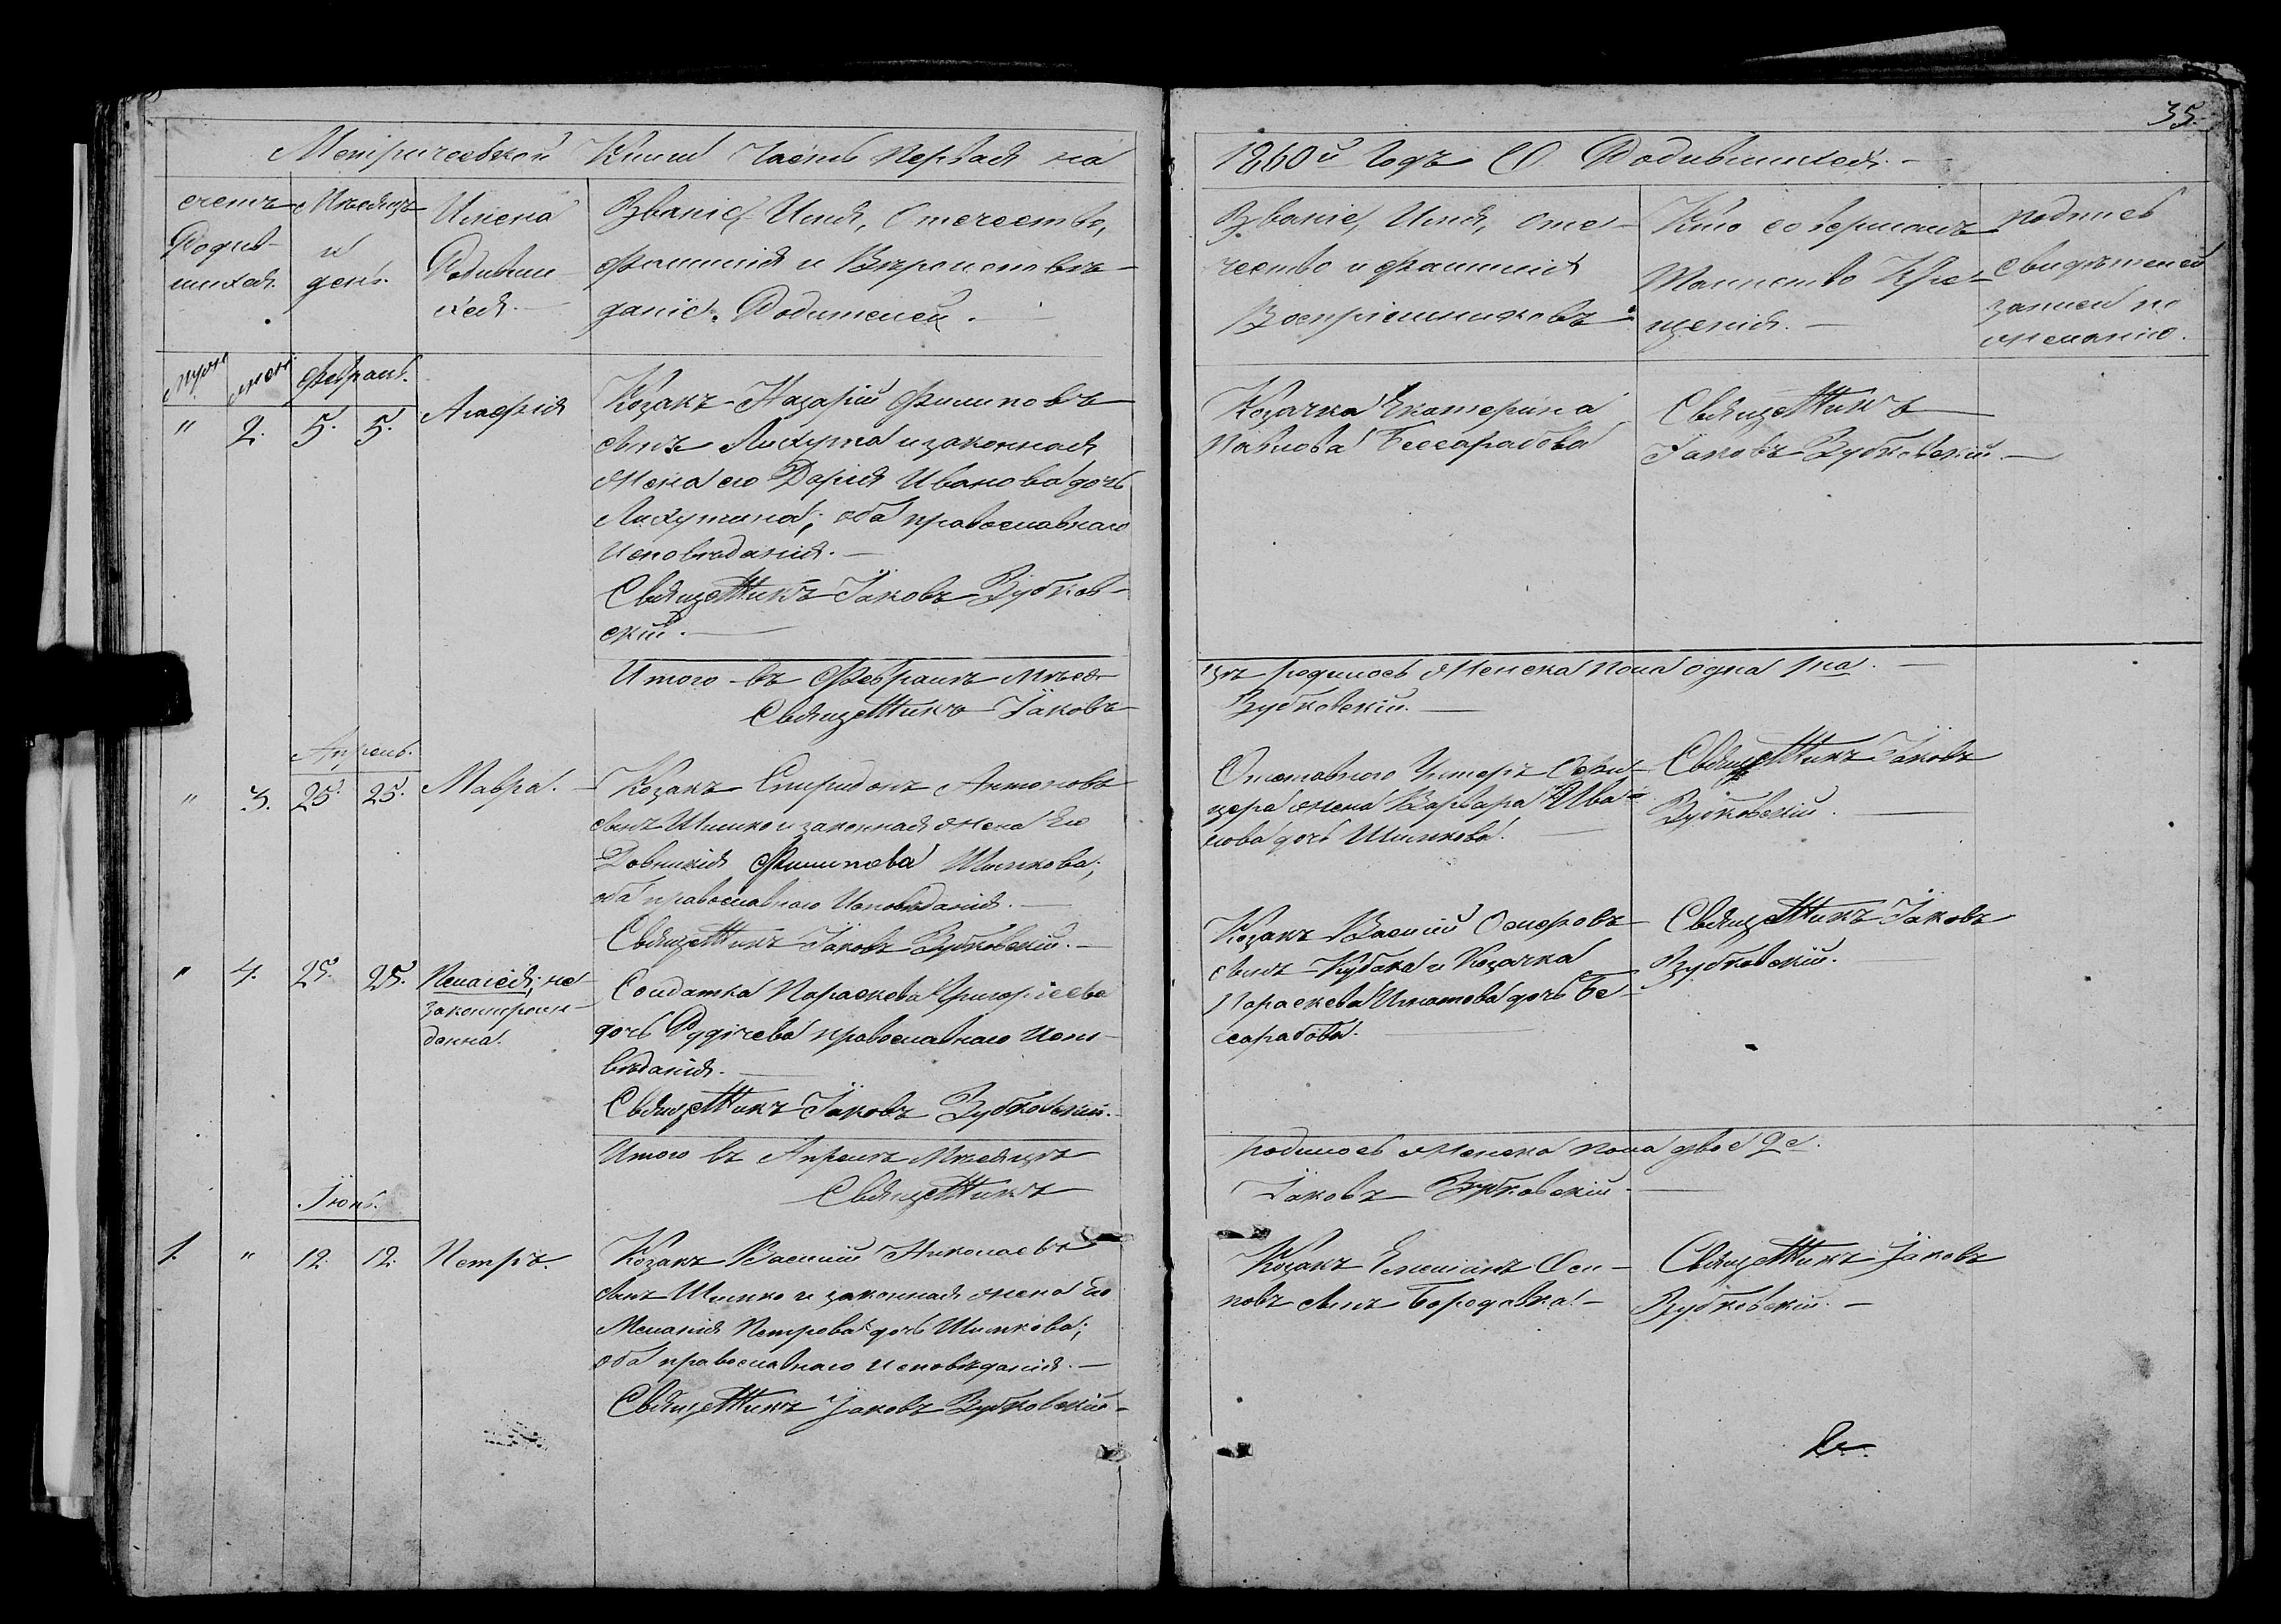 35.
Метрической Книги Часть Первая на
1860й Годъ О Родившихся.
счетъ
Родив-
шихся.
Мѣсяцъ
и
день.
Имена
Родивши
хся.
Званіе, Имя, Отечество,
Фамилія и Вѣроисповѣ-
даніе Родителей.
Званіе, Имя, Оте-
чество и Фамилія
Воспріемниковъ
Кто совершалъ
Таинство Кре-
щенія.
подпись
свидѣтелей
записи по
желанію.
муж. жен. Февраль.
" 2. 5. 5. Агафія
Козакъ Назарій Филиповъ
сынъ Лихута и законная
жена его Дарія Иванова дочь
Лихутина; оба православнаго
Исповѣданія.
СвященНикъ Іаковъ Зубков-
скій.
Козачка Екатерина
Павлова Бессарабова
СвященНикъ
Іаковъ Зубковскій.
Итого въ Февралѣ мѣся-
цѣ родилось женска пола одна 1на.
СвященНикъ Іаковъ
Зубковскій.
Апрель.
" 3. 25. 25. Мавра.
Козакъ Спиридонъ Антоновъ
сынъ Шишко и законная жена Его
Филипова Шишкова;
оба православнаго Исповѣданія.
СвященНикъ Іаковъ Зубковскій.
Отставного Унтеръ Офи-
цера жена Варвара Ива-
нова дочь Шишкова.
СвященНикъ Іаковъ
Зубковскій.
" 4. 25. 25. Пелагея; не-
законнорож-
денна.
Солдатка Параскева Григорiева
дочь православнаго Испо-
вѣданія.
СвященНикъ Іаковъ Зубковскій.
Козакъ Василій Осиповъ
сынъ Кубака и Козачка
Параскева Игнатова дочь Бе-
сарабова.
СвященНикъ Іаковъ
Зубковскій.
Итого въ Апрелѣ Мѣсяцѣ
родилось женска пола двое 2е.
СвященНикъ
Іаковъ Зубковскій.
Іюнь.
1. " 12. 12. Петръ.
Козакъ Василій Николаевъ
сынъ Шишко и законная жена Его
Меланія Петрова дочь Шишкова;
оба православнаго исповѣданія.
СвященНикъ Іаковъ Зубковскій
Козакъ Емеліанъ Оси-
повъ сынъ Бородавка.
СвященНикъ Іаковъ
Зубковскій.